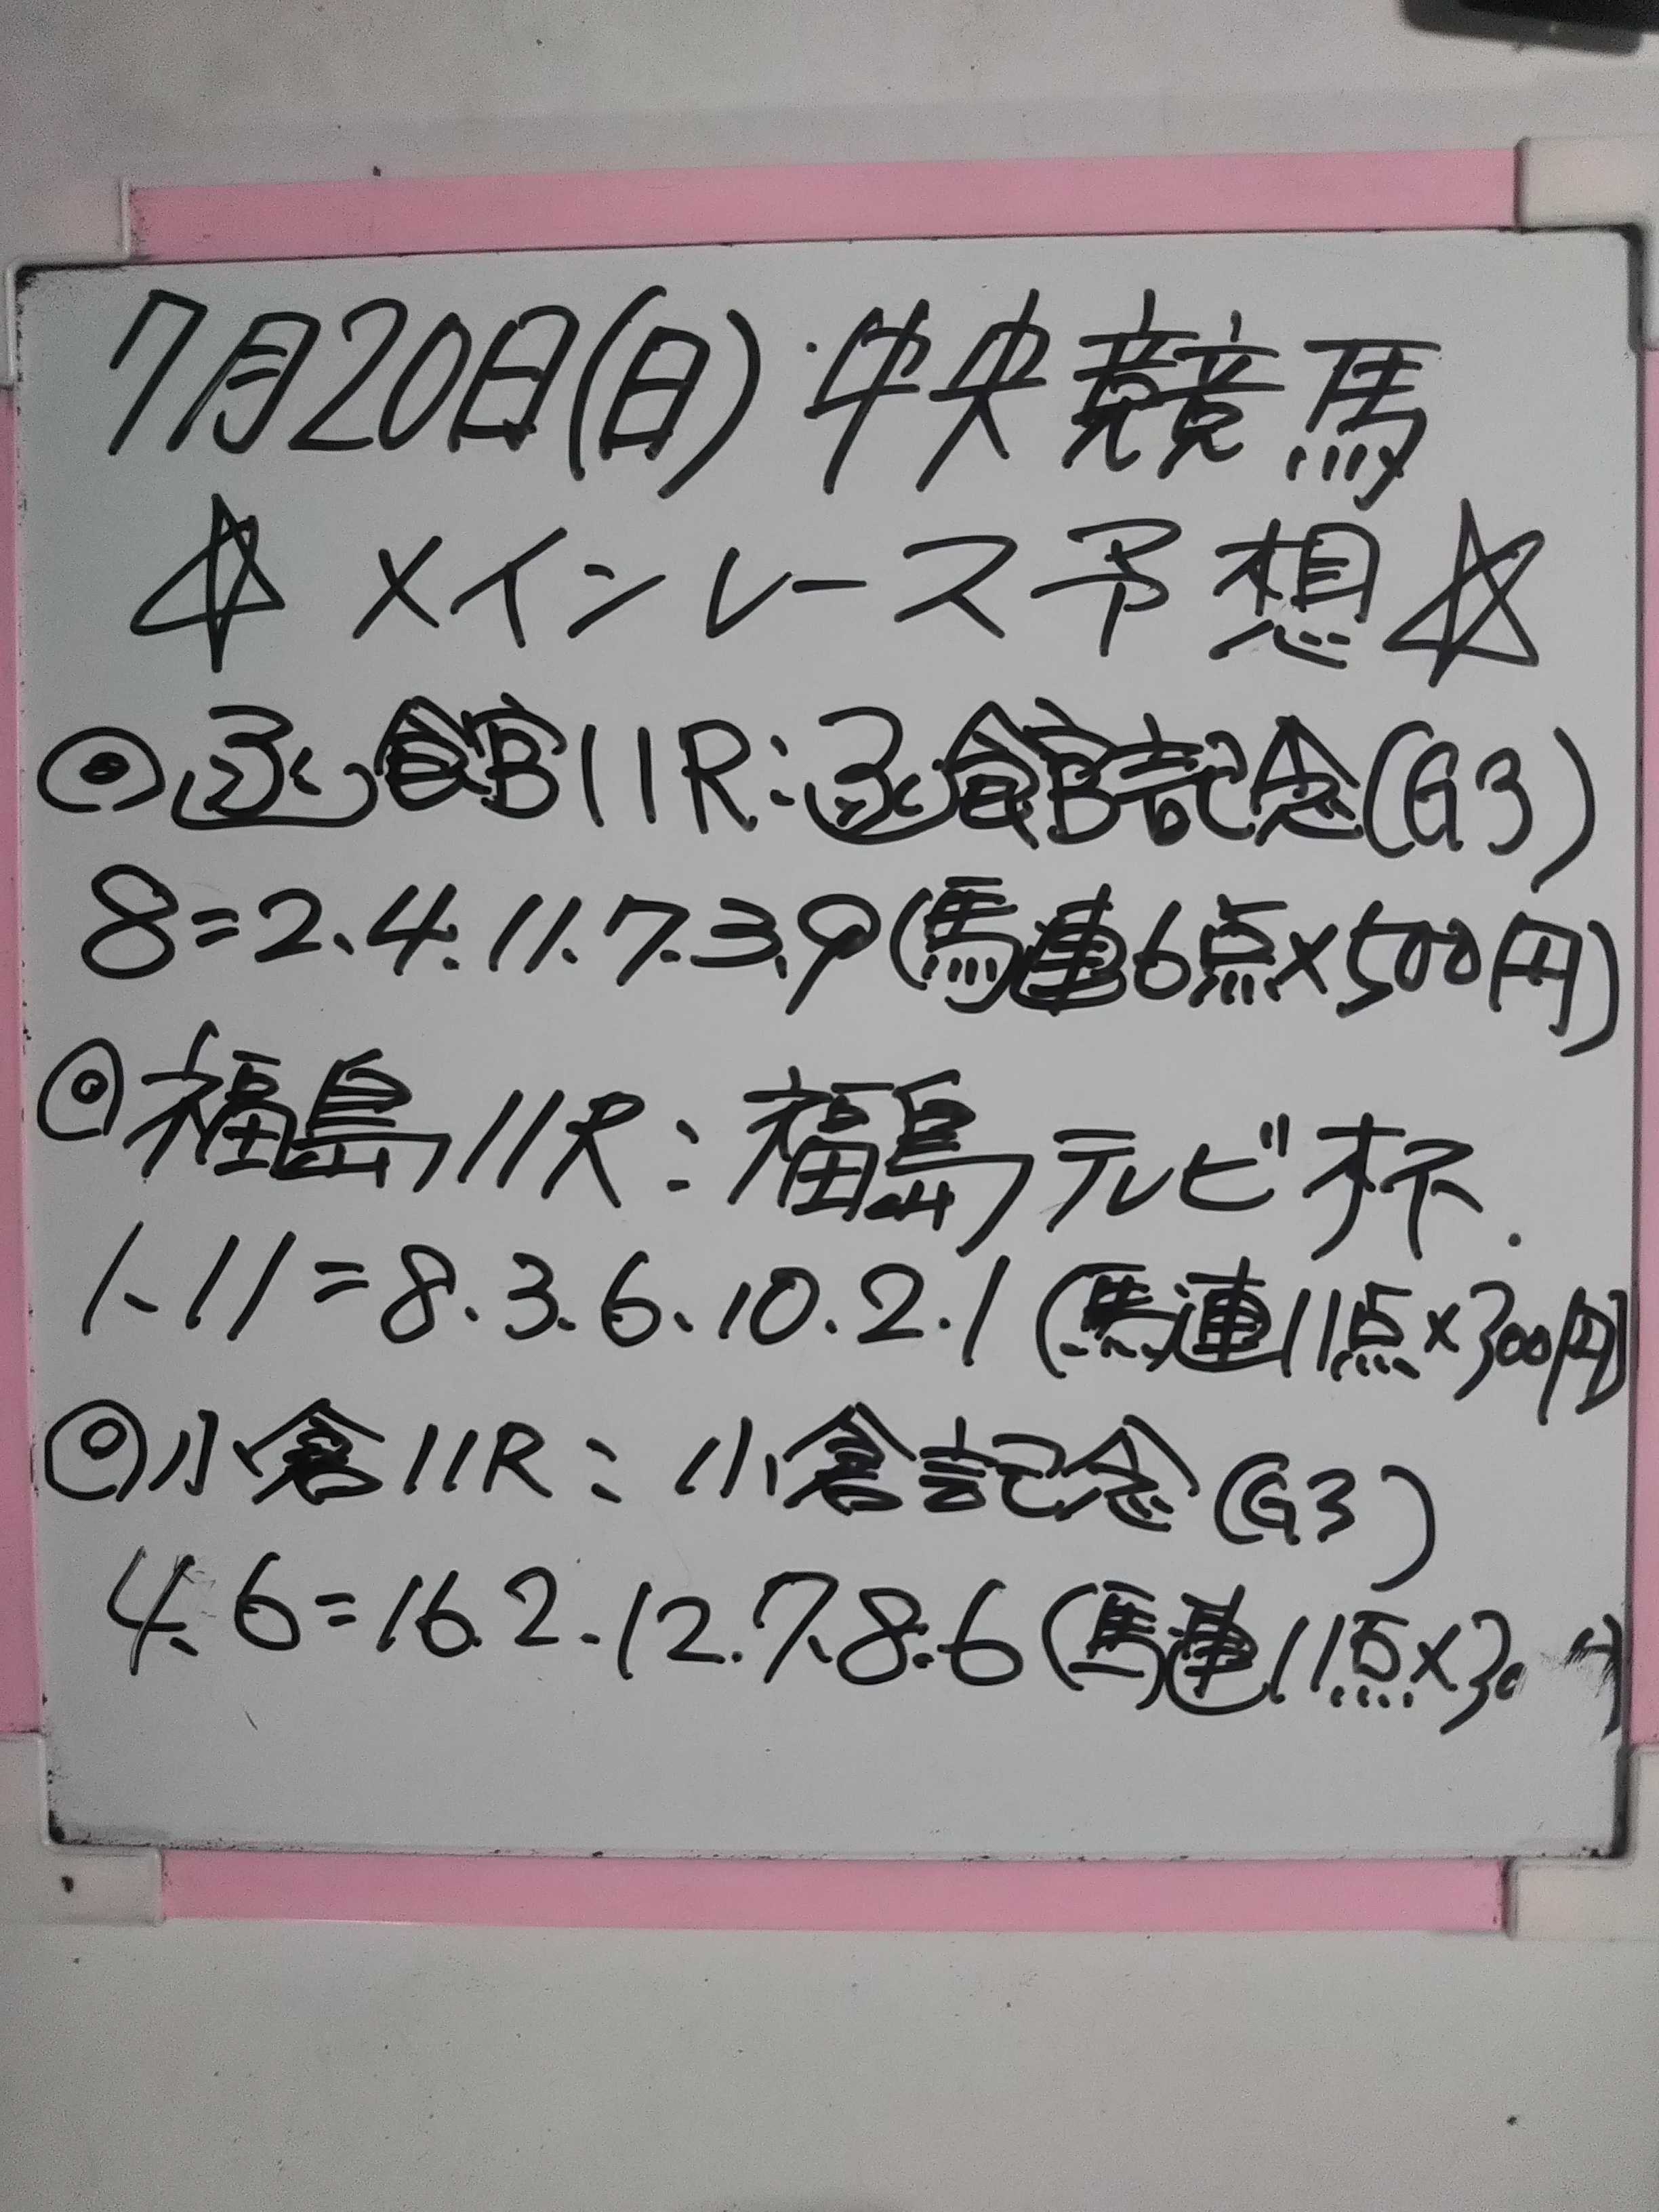 7月20日(日)中央競馬
☆メインレース予想☆
◎函館11R:函館記念(G3)
8=2.4.11.7.3.9(馬連6点×500円)
◎福島11R:福島テレビ杯.
1.11=8.3.6.10.2.1(馬連11点×300円)
◎小倉11R:小倉記念(G3)
4.6=16.2.12.7.8.6(馬連11点×30